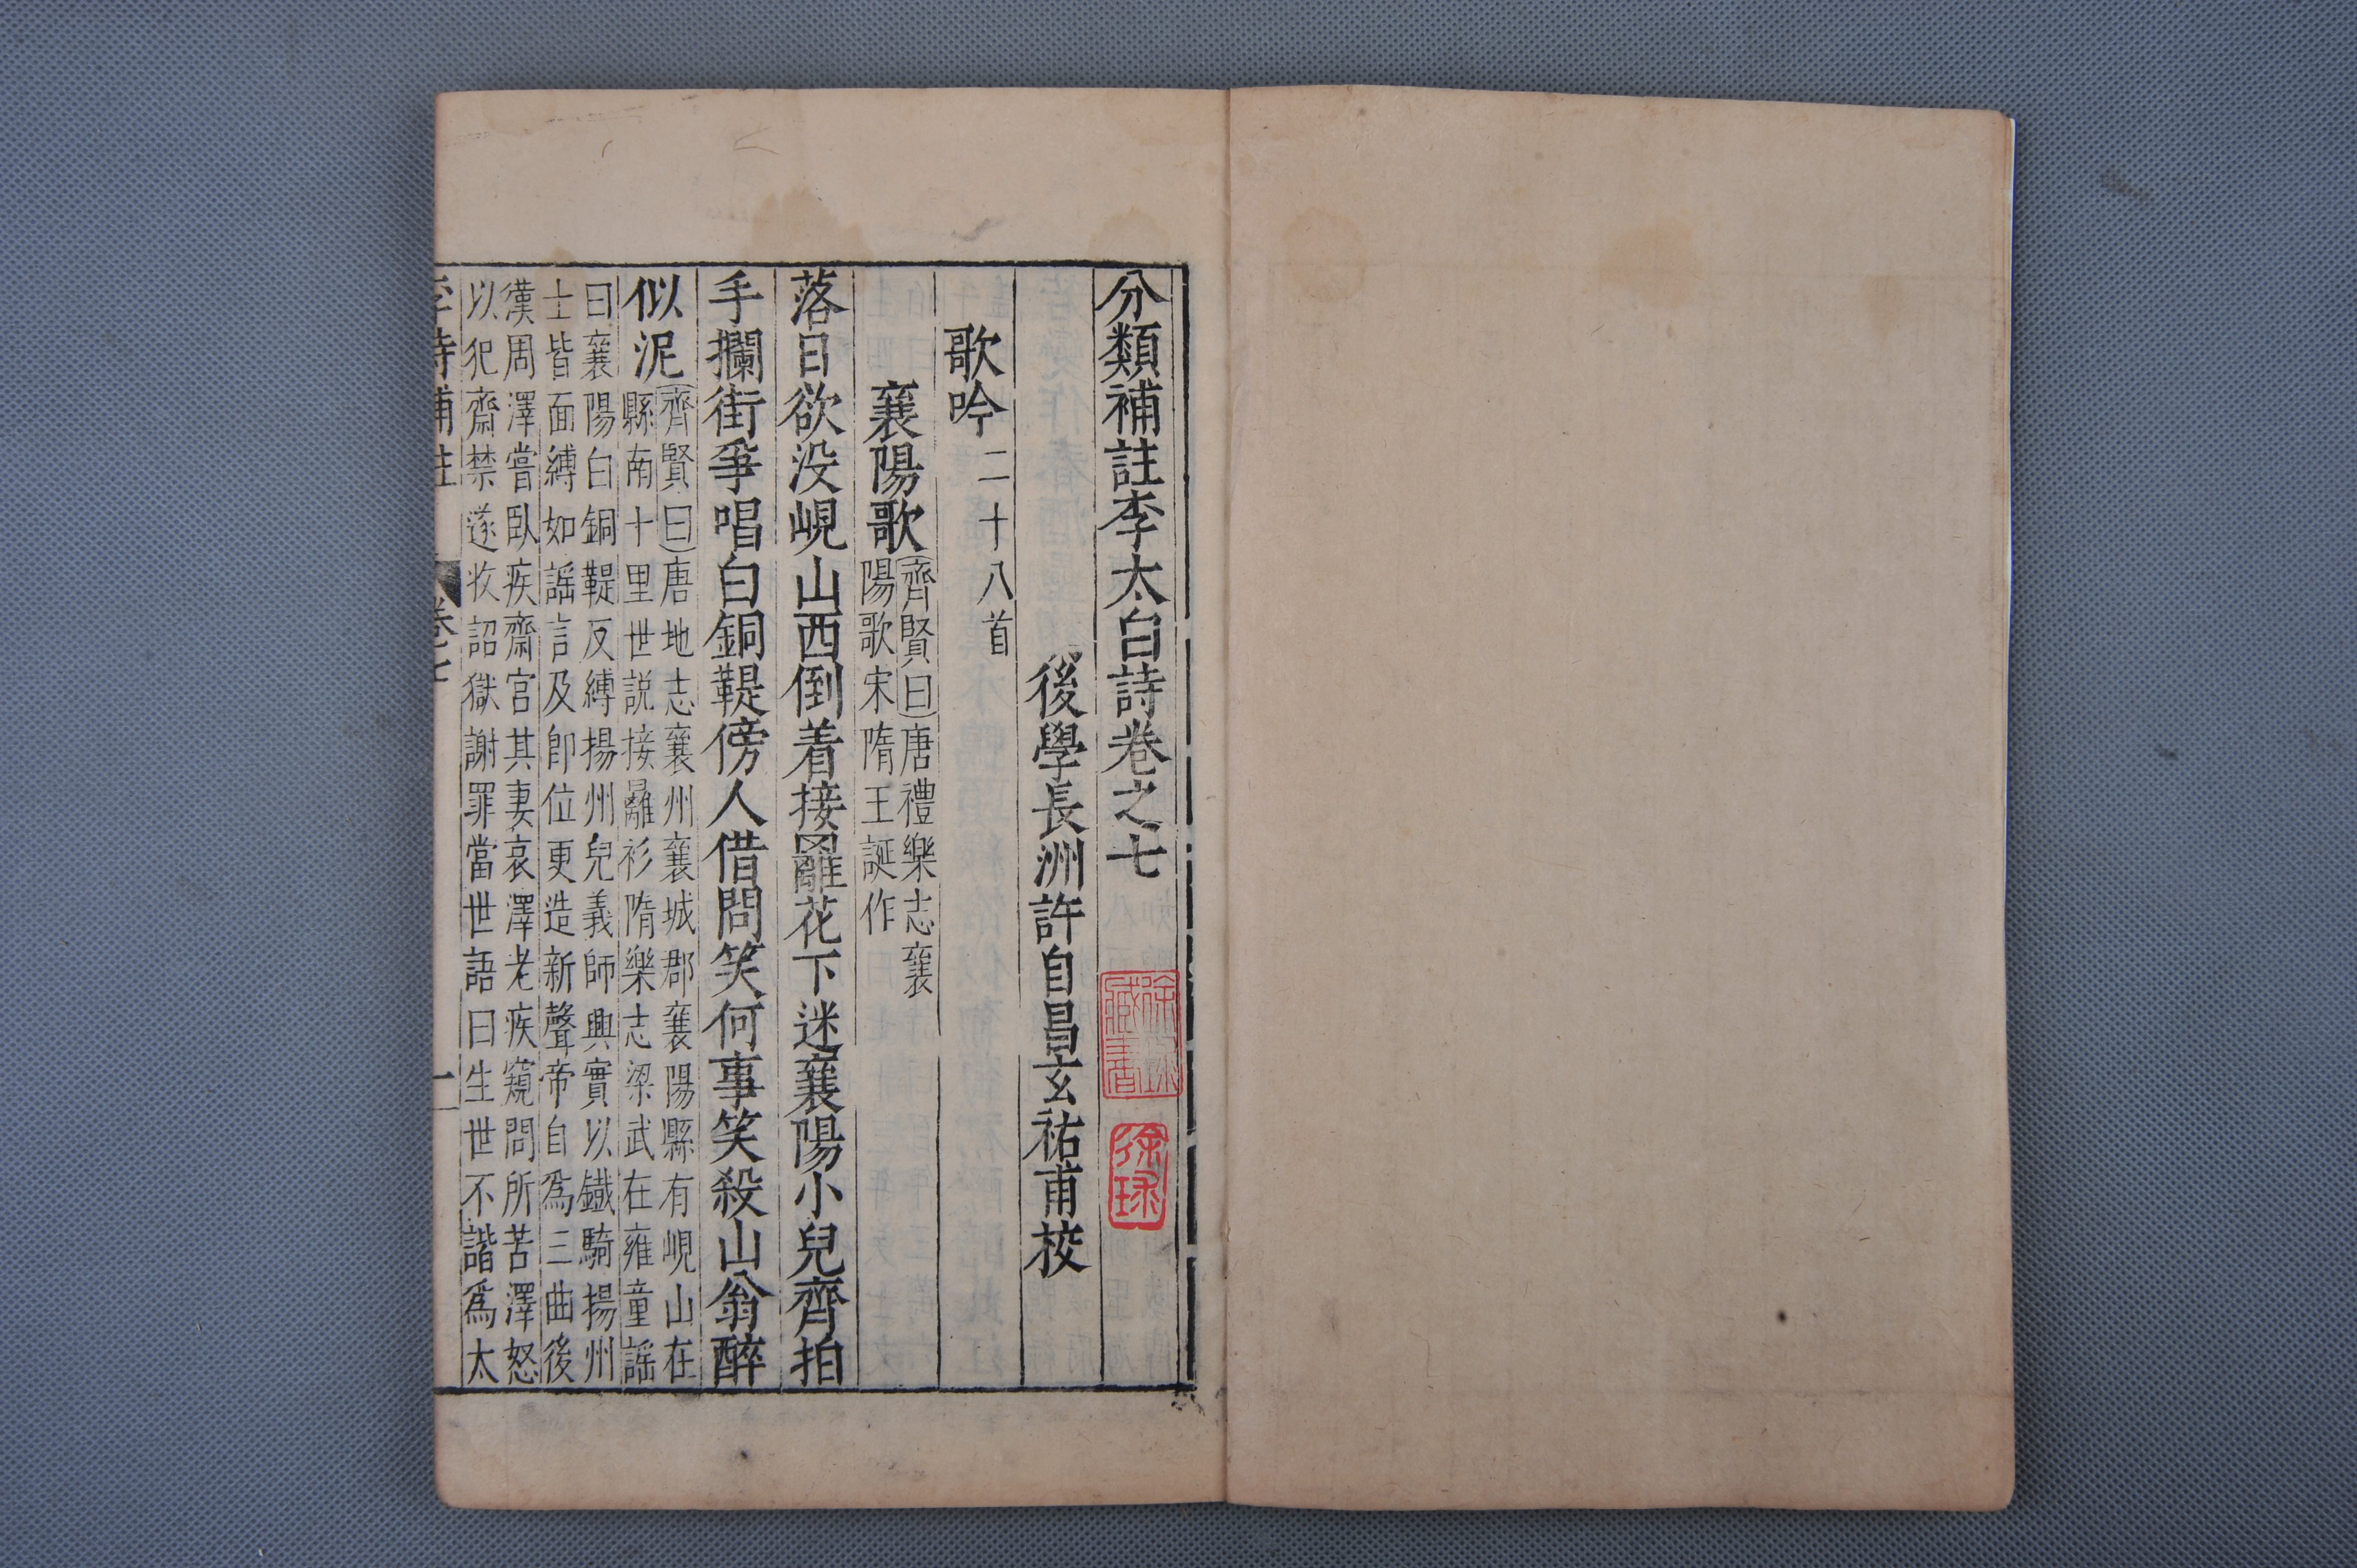 分類補註李太白詩卷之七
後學長洲許自昌玄祐甫校
歌吟二十八首
襄陽歌齊賢曰唐禮樂志襄
陽歌宋隋王誕作
落日欲没峴山西倒着接䍦花下迷襄陽小兒齊拍
手攔街爭唱白銅鞮傍人借問笑何事笑殺山翁醉
似泥齊賢曰唐地志襄州襄城郡襄陽縣有峴山在
縣南十里世説接䍦衫隋樂志梁武在雍童謡
曰襄陽白銅鞮反縛揚州兒義師興實以鐡騎揚州
士皆面縛如謡言及卽位更造新聲帝自爲三曲後
漢周澤嘗臥疾齋宮其妻哀澤老疾窺問所苦澤怒
以犯齋禁遂收詔獄謝罪當世語曰生世不諧爲太
李詩補註 卷七 一
徐球